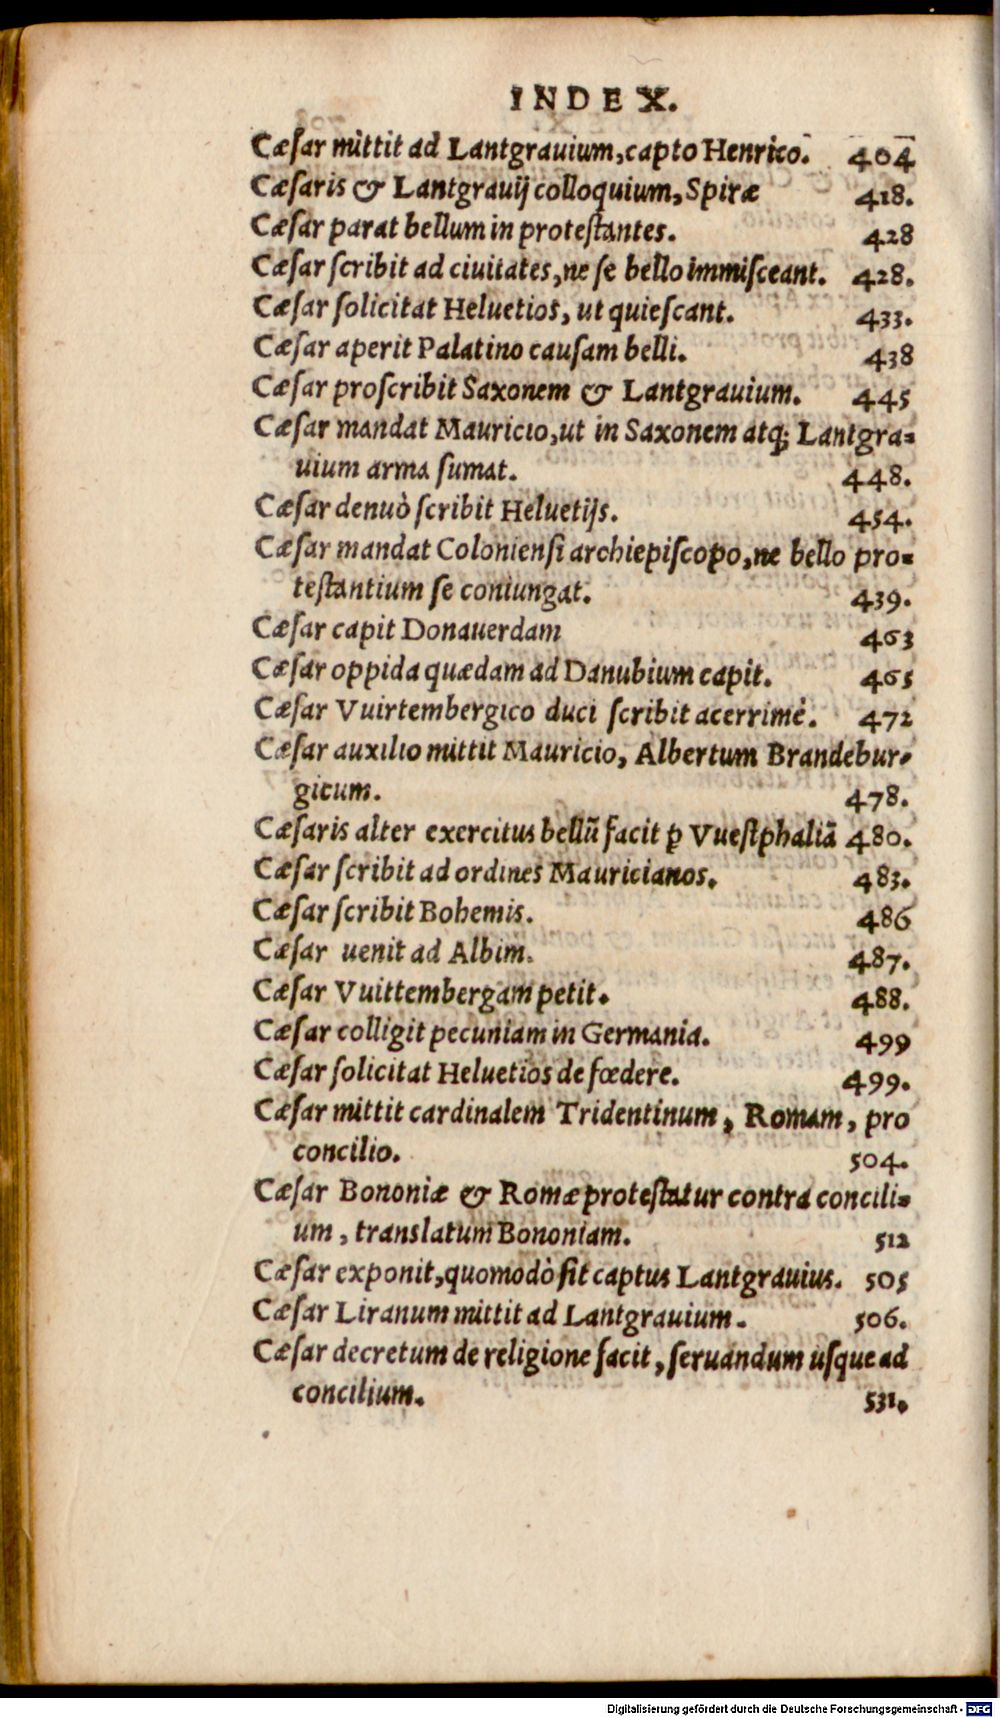 INDEX.
Cæſar mittit ad Lantgrauium, capto Henrico. 404
Cæſaris & Lantgrauij colloquium, Spiræ 418.
Cæſar parat bellum in proteſtantes. 428
Cæſar ſcribit ad ciuitates, ne ſe bello immiſceant. 428.
Cæſar ſolicitat Heluetios, ut quieſcant. 433.
Cæſar aperit Palatino cauſam belli. 438
Cæſar proſcribit Saxonem & Lantgrauium. 445
Cæſar mandat Mauricio, ut in Saxonem atq; Lantgra-
uium arma ſumat. 448.
Cæſar denuò ſcribit Heluetijs. 454.
Cæſar mandat Colonienſi archiepiſcopo, ne bello pro-
teſtantium ſe coniungat. 439.
Cæſar capit Donauerdam 463
Cæſar oppida quædam ad Danubium capit. 465
Cæſar Vuirtembergico duci ſcribit acerrimè. 472
Cæſar auxilio mittit Mauricio, Albertum Brandebur-
gicum. 478.
Cæſaris alter exercitus bellū facit ꝑ Vueſtphaliā 480.
Cæſar ſcribit ad ordines Mauricianos. 483.
Cæſar ſcribit Bohemis. 486
Cæſar uenit ad Albim. 487.
Cæſar Vuittembergam petit. 488.
Cæſar colligit pecuniam in Germania. 499
Cæſar ſolicitat Heluetios de fœdere. 499.
Cæſar mittit cardinalem Tridentinum, Romam, pro
concilio. 504.
Cæſar Bononiæ & Romæ proteſtatur contra concili-
um, translatum Bononiam. 512
Cæſar exponit, quomodò ſit captus Lantgrauius. 505
Cæſar Liranum mittit ad Lantgrauium. 506.
Cæſar decretum de religione facit, ſeruandum uſque ad
concilium. 531.
Digitalisierung gefördert durch die Deutsche Forschungsgemeinschaft - DFG